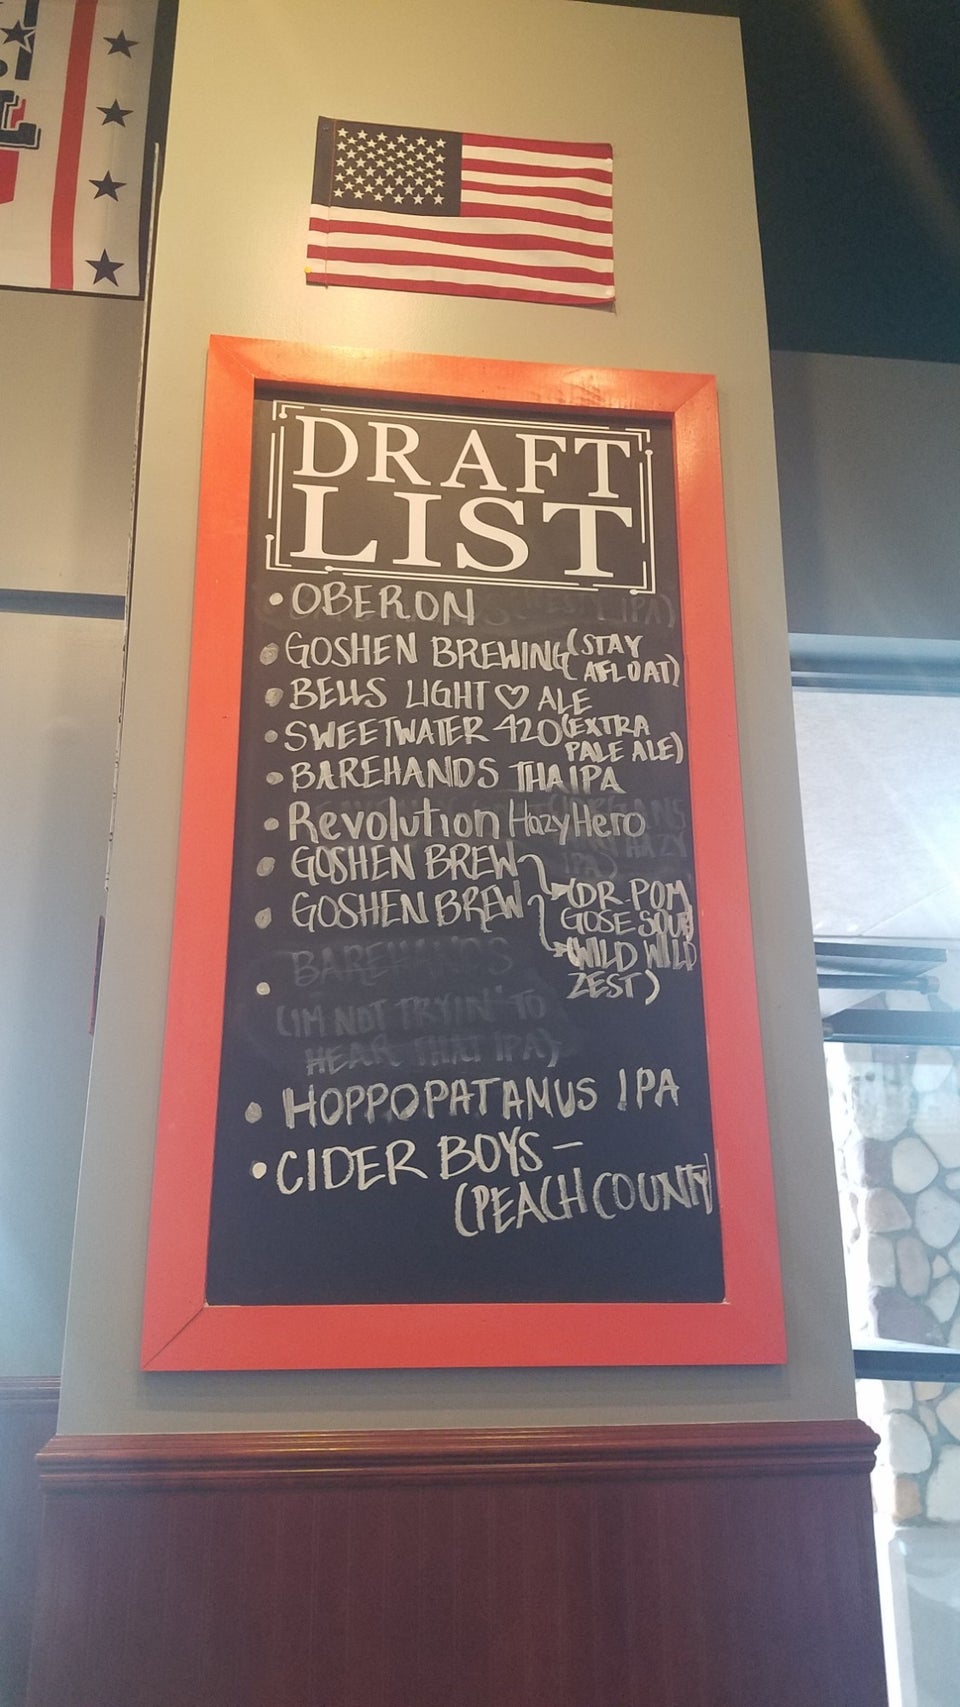 DRAFT
LIST
• OBERON
IPA)
• GOSHEN BREWING (STAY
AFLOAT)
• BELLS LIGHT ♡ ALE
• SWEETWATER 420 (EXTRA
PALE ALE)
• BAREHANDS THAIPA
• Revolution HazyHero
• GOSHEN BREW
• GOSHEN BREW
(DR. POM
GOSE SOUR
(WILD WILD
ZEST)
BAREHANDS
•
(IM NOT TRYIN' TO
HEAR THAT IPA)
• HOPPOPATAMUS IPA
• CIDER BOYS -
(PEACH COUNTY)